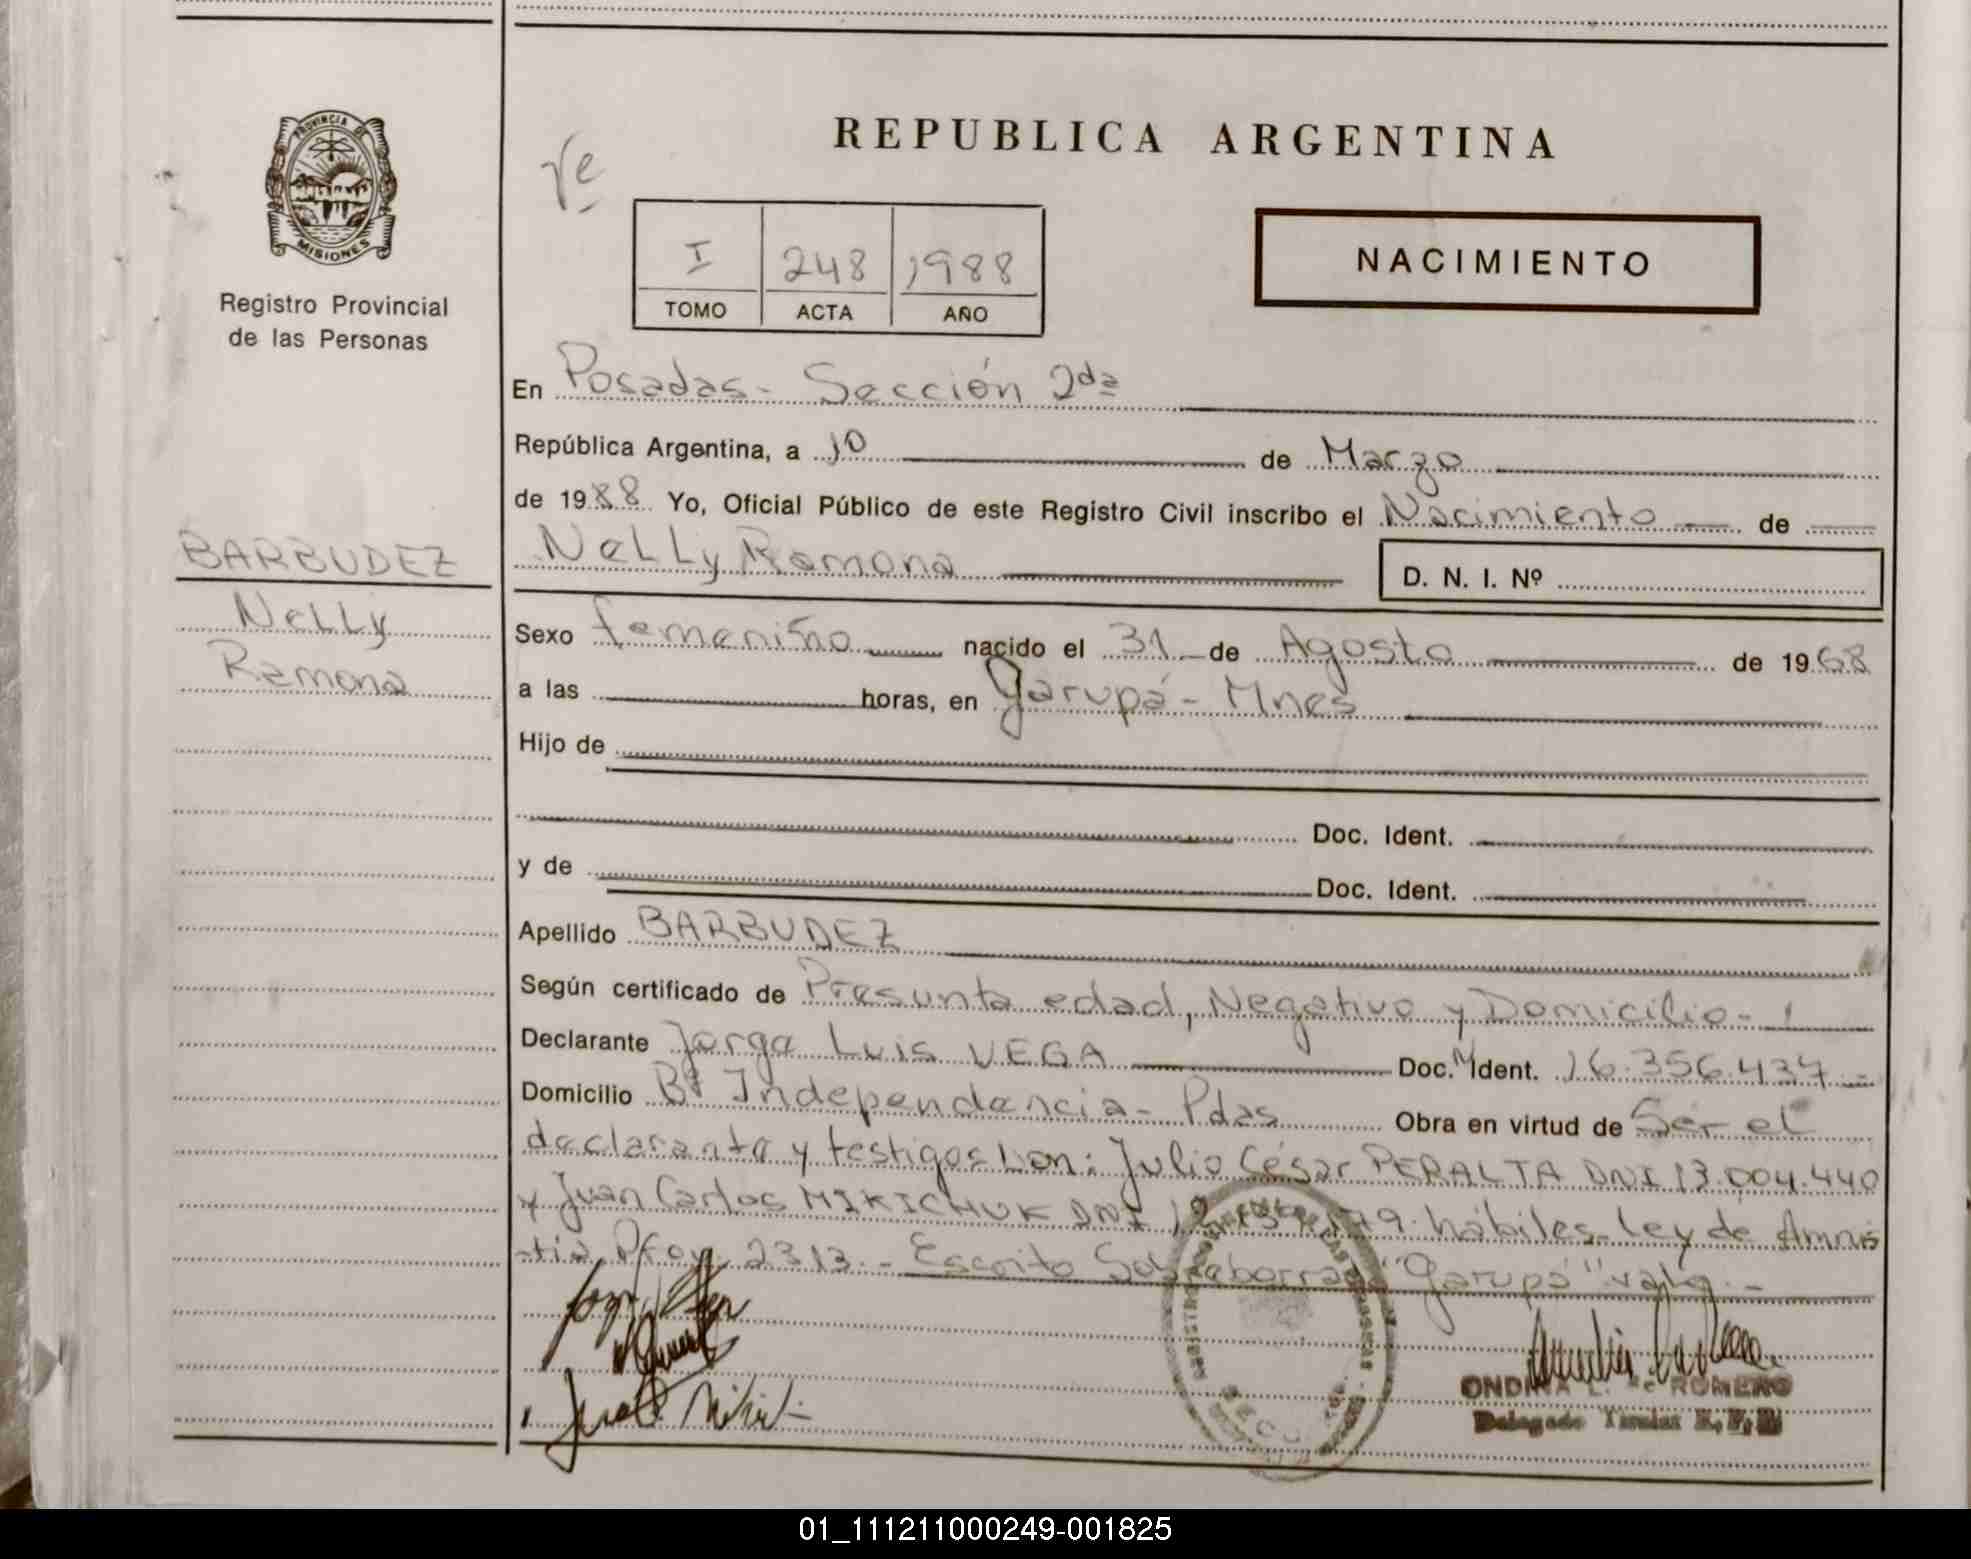 PROVINCIA DE
MISIONES
Registro Provincial
de las Personas
REPUBLICA ARGENTINA
NACIMIENTO
I 248 1988
TOMO ACTA AÑO
En Posadas - Sección 2da
República Argentina, a 10 de Marzo
de 1988 Yo, Oficial Público de este Registro Civil inscribo el Nacimiento de
BARBUDEZ
Nelly Ramona D. N. I. Nº
Nelly
Ramona
Sexo femenino nacido el 31 de Agosto de 1968
a las horas, en Garupá - Mnes
Hijo de
Doc. Ident.
y de Doc. Ident.
Apellido BARBUDEZ
Según certificado de Presunta edad, Negativo y Domicilio -
Declarante Jorge Luis VEGA Doc. Ident. 16.356.437 -
Domicilio Bº Independencia - Pdas Obra en virtud de Ser el
declarante y testigos son: Julio César PERALTA DNI 13.004.440
y Juan Carlos MIKICHUK DNI hábiles - Ley de Amnis
tia Prov. 2313 - Escrito Sobreborrado "Garupá" vale. -
ONDINA L. de ROMERO
Delegado Titular R. P. P.
01_111211000249-001825